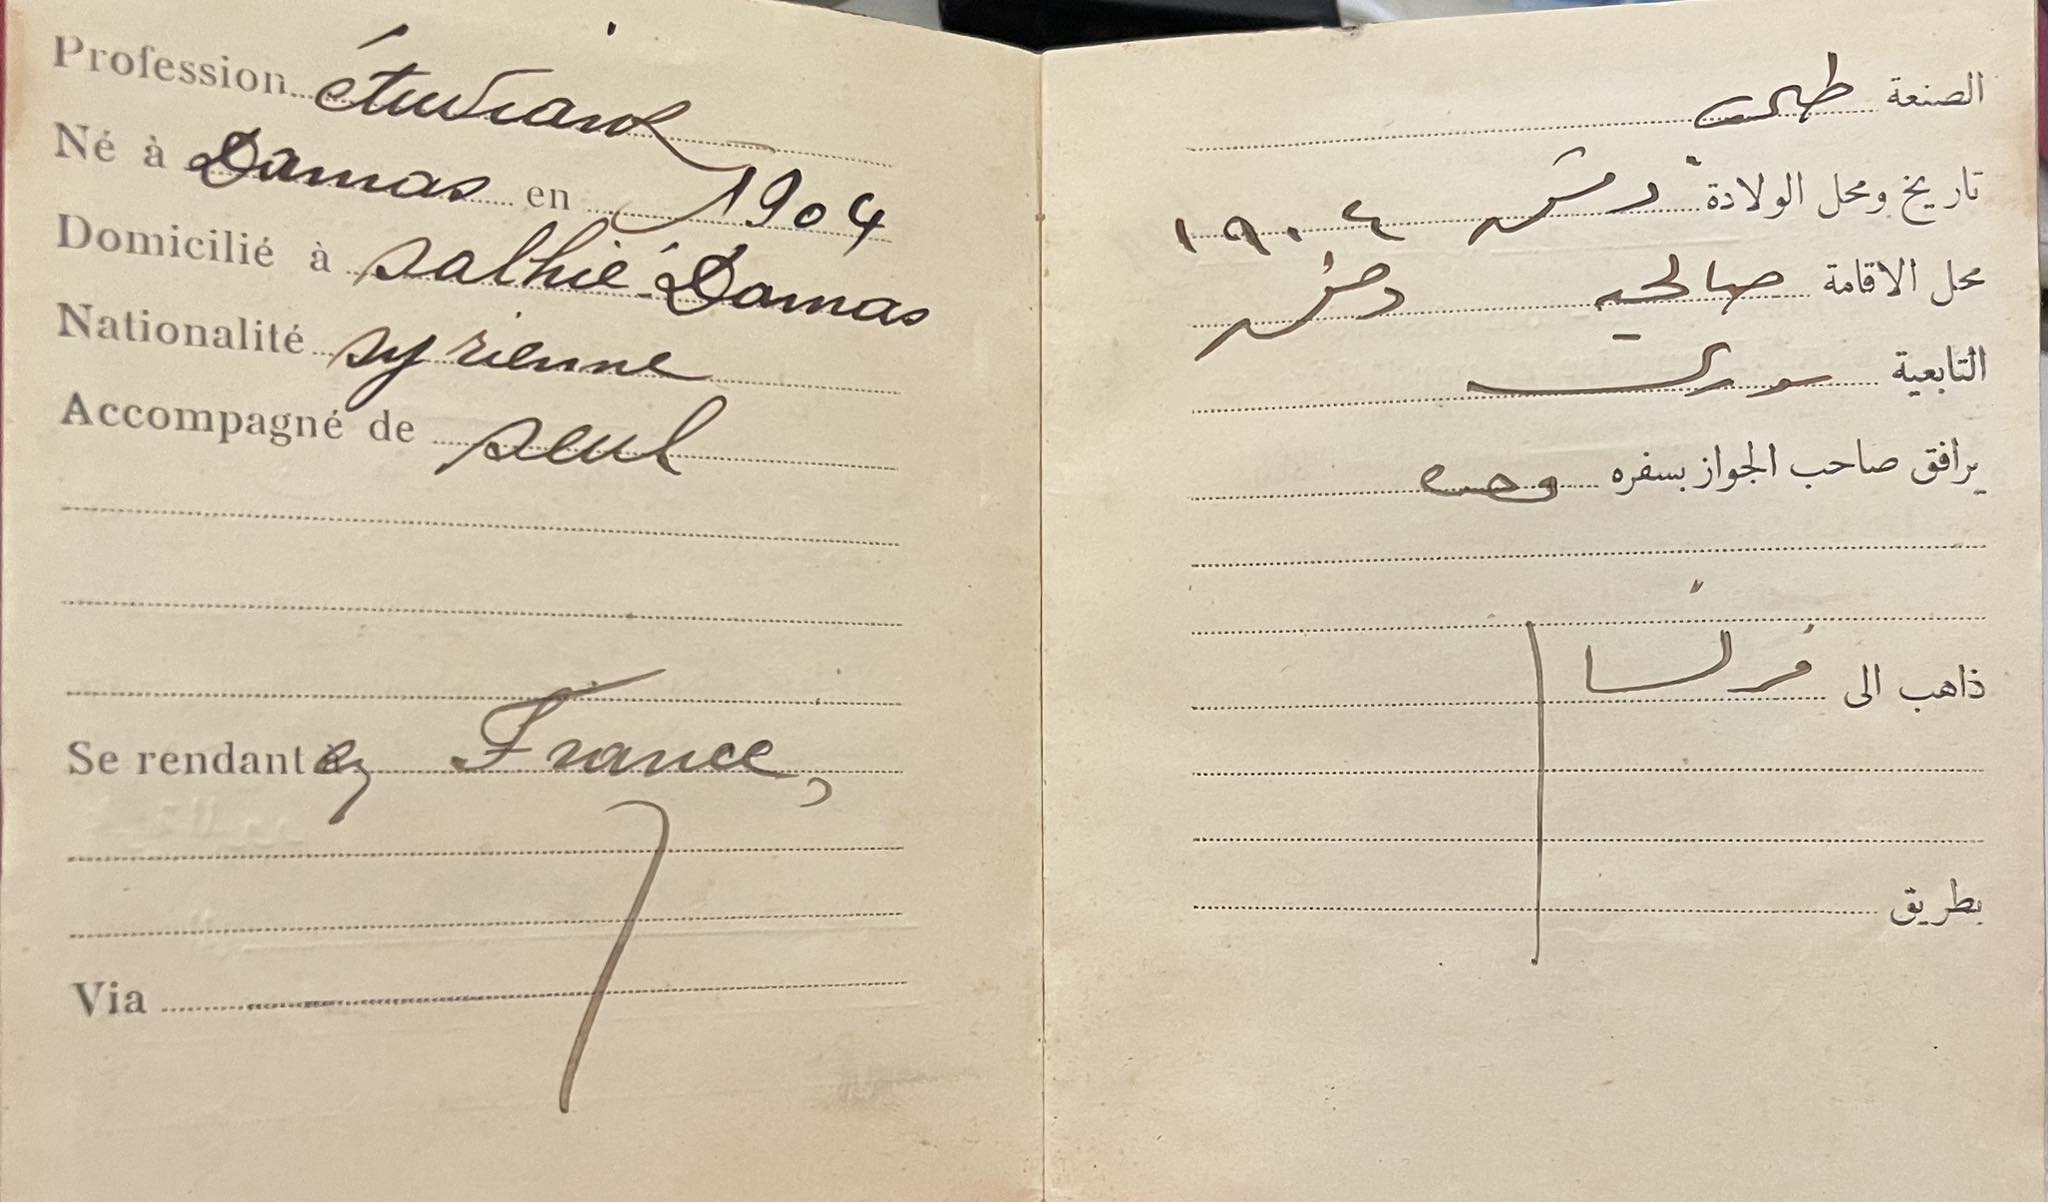 Profession étudiant
Né à Damas en 1904
Domicilié à salhié-Damas
Nationalité syrienne
Accompagné de seul
Se rendant en France,
Via
الصنعة
تاريخ ومحل الولادة دمشق ١٩٠٤
محل الاقامة صالحيه دمشق
التابعية سوري
يرافق صاحب الجواز بسفره وحده
ذاهب الى فرنسا
بطريق